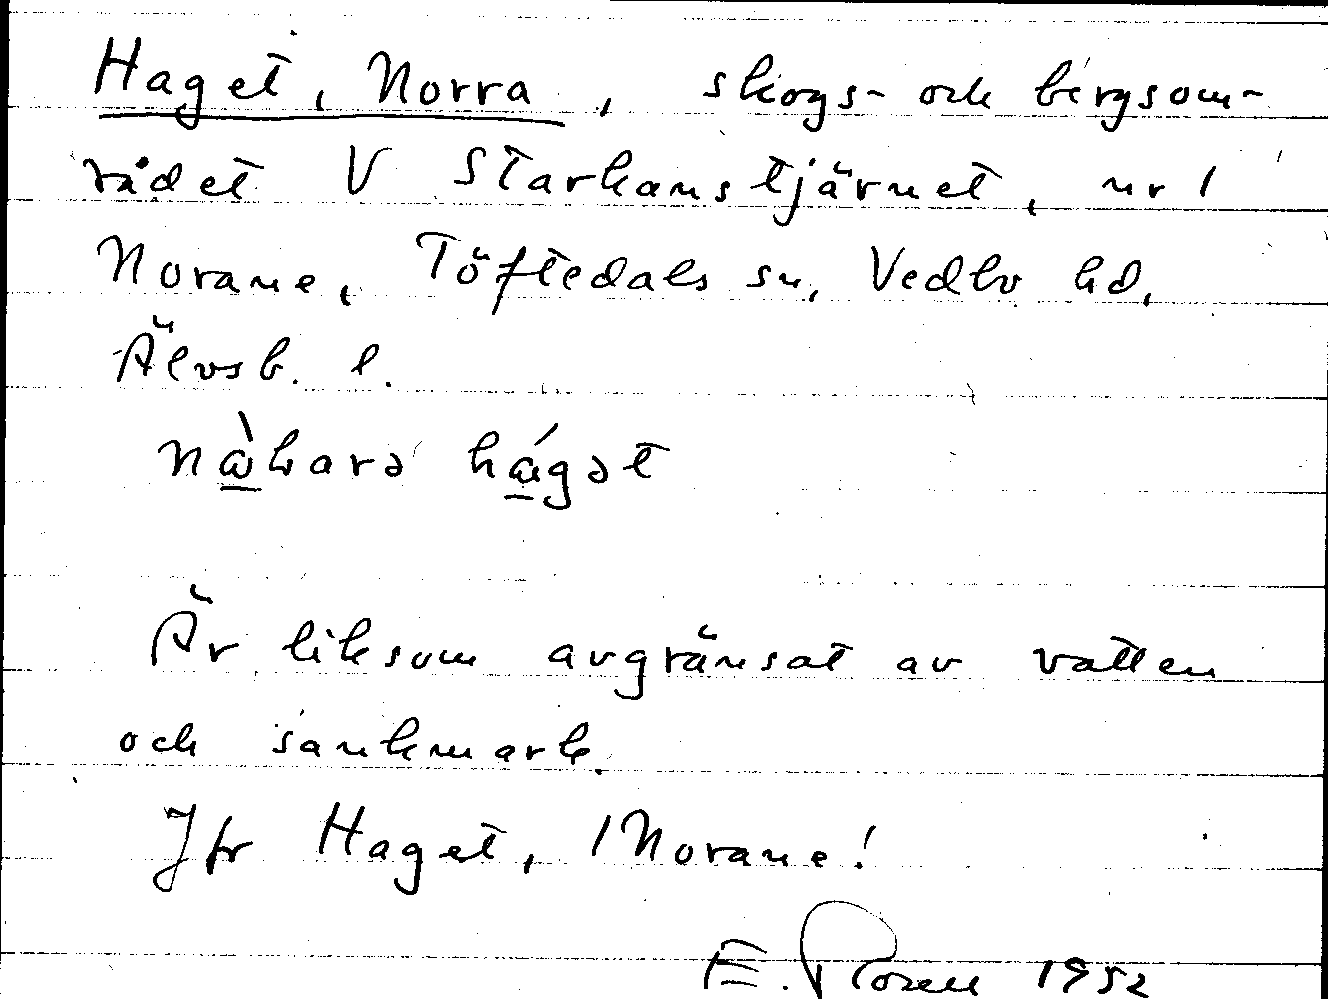 Haget, Norra, skogs- och bergsom-
rådet V Starkanstjärnet, nr 1
Norane, Töftedals sn, Vedbo hd,
Älvsb. l.
hágət
Är liksom avgränsat av vatten
och sankmark.
Jfr Haget, 1 Norane!
E. Rosell 1952